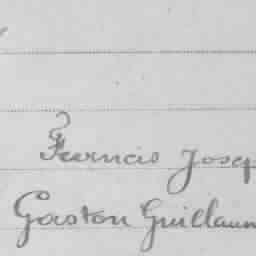 Francis Josep
Gaston Guillaum